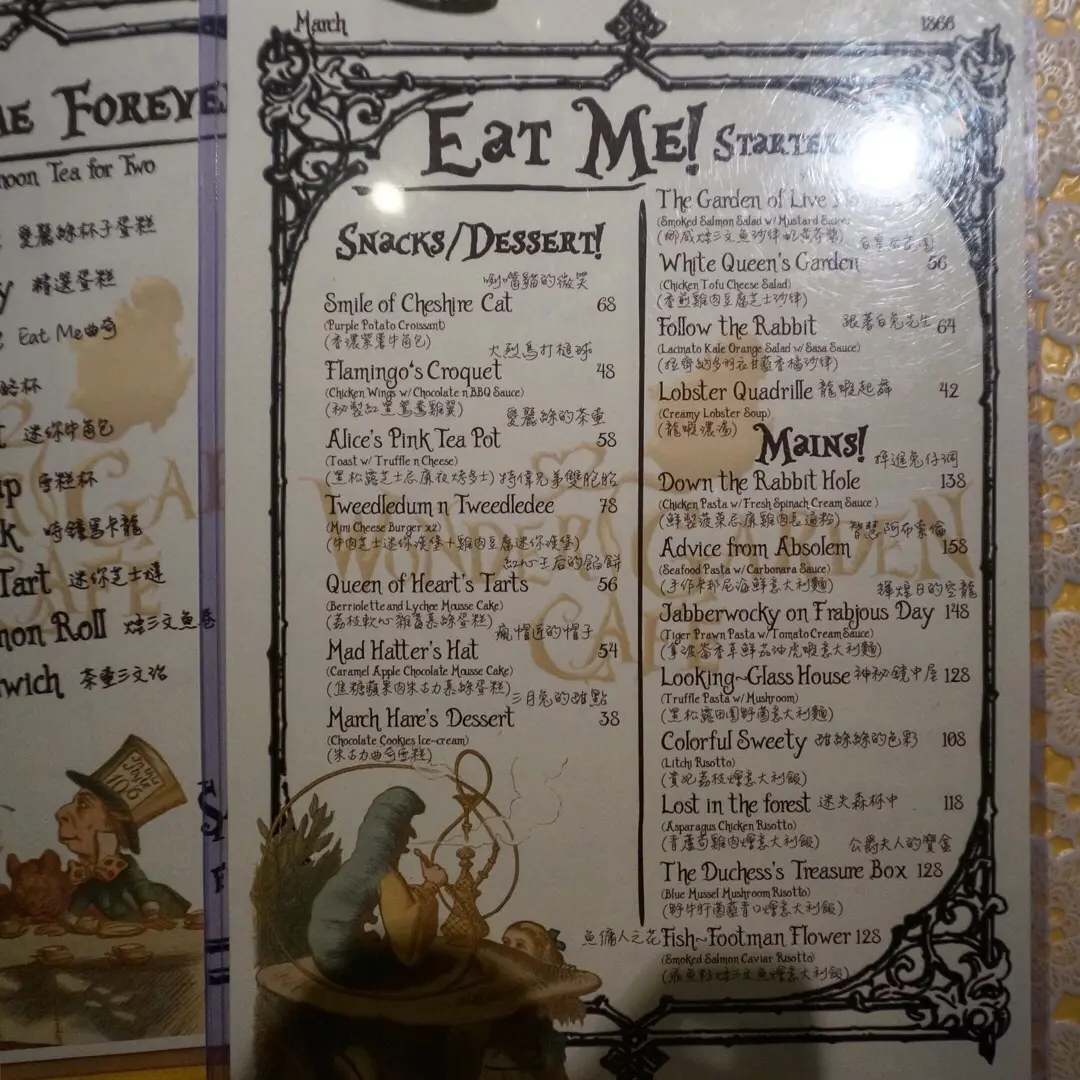 ME FOREVE
noon Tea for Two
愛麗絲杯子蛋糕
精選蛋糕
Eat Me曲奇
迷你牛角包
雪糕杯
時鐘馬卡龍
Tart 迷你芝士撻
mon Roll 煙三文魚卷
wich 茶童三文治
In this Style 10/6
March
1866
EAT ME!
SNACKS/DESSERT!
Smile of Cheshire Cat 68
(Purple Potato Croissant)
(香濃紫薯牛角包)
火烈鳥打槌球
Flamingo's Croquet 48
(Chicken Wings w/ Chocolate n BBQ Sauce)
(秘製紅黑鴛鴦雞翼)
愛麗絲的茶壺
Alice's Pink Tea Pot 58
(Toast w/ Truffle n Cheese)
(黑松露芝士忌廉夜烤多士)
特偉兄弟雙胞胎
Tweedledum n Tweedledee 78
(Mini Cheese Burger x2)
(牛肉芝士迷你漢堡+雞肉豆腐迷你漢堡)
紅心王后的餡餅
Queen of Heart's Tarts 56
(Berriolette and Lychee Mousse Cake)
(荔枝軟心雜莓慕絲蛋糕)
瘋帽匠的帽子
Mad Hatter's Hat 54
(Caramel Apple Chocolate Mousse Cake)
(焦糖蘋果肉朱古力慕絲蛋糕)
三月兔的甜點
March Hare's Dessert 38
(Chocolate Cookies Ice-cream)
(朱古力曲奇雪糕)
STARTE
The Garden of Live
(Smoked Salmon Salad w/ Mustard Sauce)
White Queen's Garden 56
(Chicken Tofu Cheese Salad)
(香煎雞肉豆腐芝士沙律)
Follow the Rabbit 跟著白兔先生 64
(Lacinato Kale Orange Salad w/ Sasa Sauce)
Lobster Quadrille 龍蝦起舞 42
(Creamy Lobster Soup)
(龍蝦濃湯)
MAINS!
掉進兔仔洞
Down the Rabbit Hole 138
(Chicken Pasta w/Fresh Spinach Cream Sauce )
(鮮製菠菜忌廉雞肉長通粉)
智慧阿布索倫
Advice from Absolem 158
(Seafood Pasta w/Carbonara Sauce)
(手作卡邦尼海鮮意大利麵)
輝煌日的空龍
Jabberwocky on Frabjous Day 148
(Tiger Prawn Pasta w/ Tomato Cream Sauce)
(拿波崙香草鮮茄汁虎蝦意大利麵)
Looking~Glass House 神秘鏡中屋 128
(Truffle Pasta w/ Mushroom)
(黑松露田園野菌意大利麵)
Colorful Sweety 甜絲絲的色彩 108
(Litchi Risotto)
(貴妃荔枝燴意大利飯)
Lost in the forest 迷失森林中 118
(Asparagus Chicken Risotto)
(青蘆荀雞肉燴意大利飯)
公爵夫人的寶盒
The Duchess's Treasure Box 128
(Blue Mussel Mushroom Risotto)
(野牛肝菌藍青口燴意大利飯)
魚傭人之花 Fish~Footman Flower 128
(Smoked Salmon Caviar Risotto)
(飛魚籽煙三文魚燴意大利飯)
WONDER GARDEN
CAFE